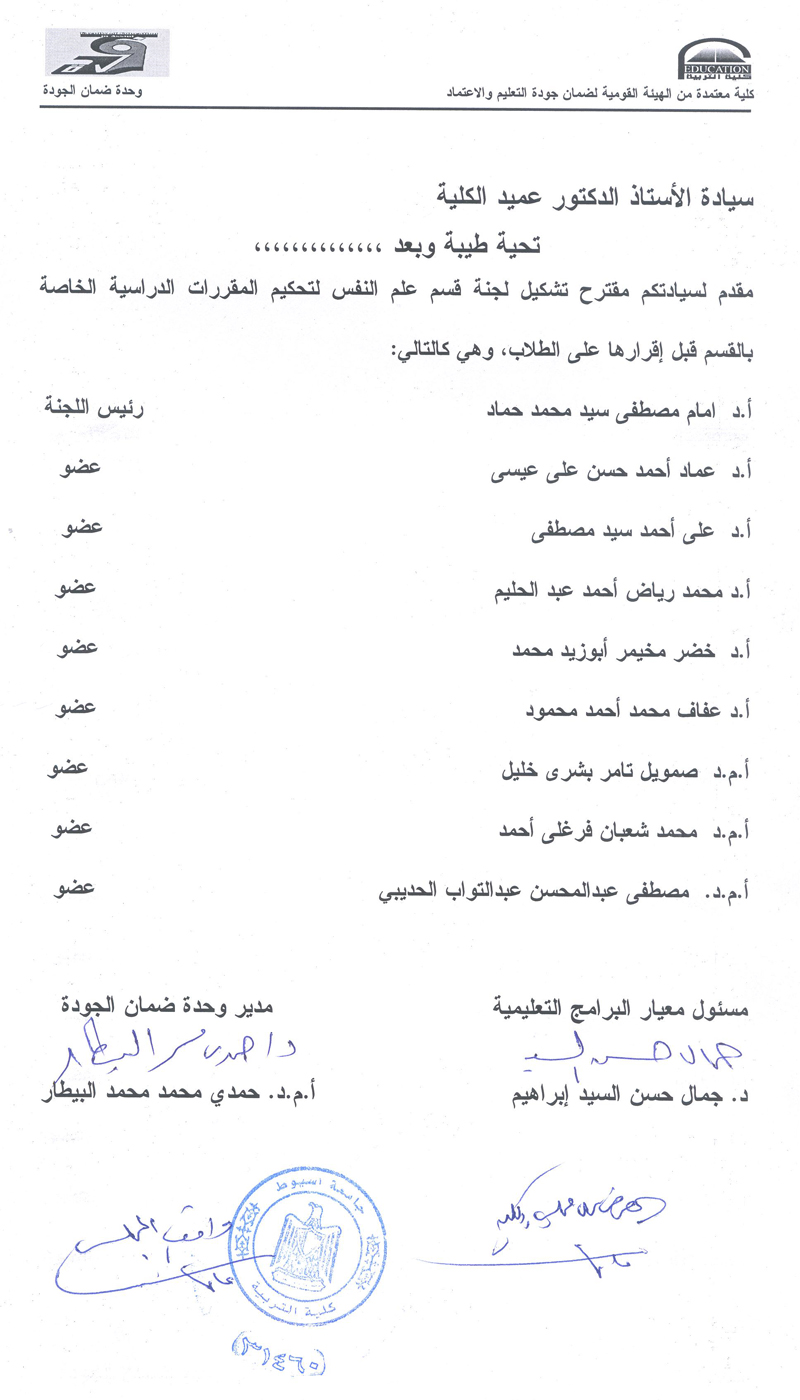 EDUCATION
كلية التربية
كلية معتمدة من الهيئة القومية لضمان جودة التعليم والاعتماد
وحدة ضمان الجودة
سيادة الأستاذ الدكتور عميد الكلية
تحية طيبة وبعد ،،،،،،،،،،،،،،
مقدم لسيادتكم مقترح تشكيل لجنة قسم علم النفس لتحكيم المقررات الدراسية الخاصة
بالقسم قبل إقرارها على الطلاب، وهي كالتالي:
أ.د امام مصطفى سيد محمد حماد رئيس اللجنة
أ.د عماد أحمد حسن على عيسى عضو
أ.د على أحمد سيد مصطفى عضو
أ.د محمد رياض أحمد عبد الحليم عضو
أ.د خضر مخيمر أبوزيد محمد عضو
أ.د عفاف محمد أحمد محمود عضو
أ.م.د صمويل تامر بشرى خليل عضو
أ.م.د محمد شعبان فرغلى أحمد عضو
أ.م.د. مصطفى عبدالمحسن عبدالتواب الحديبي عضو
مسئول معيار البرامج التعليمية مدير وحدة ضمان الجودة
جمال حسن السيد
د. جمال حسن السيد إبراهيم أ.م.د. حمدي محمد محمد البيطار
وافق المجلس
جامعة أسيوط
كلية التربية
(٣١٤٦٠)